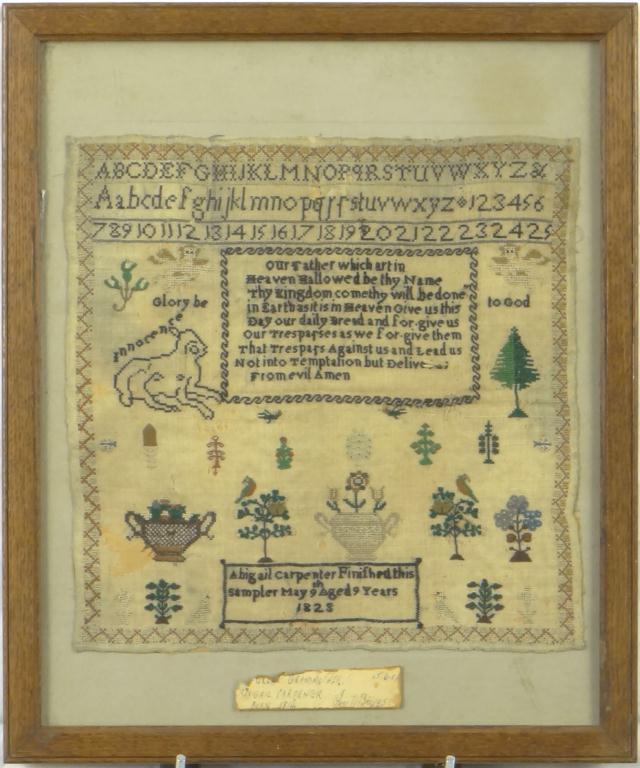 ABCDEFGHIJKLMNOPQRSTUVWXYZ&
Aabcdefghijklmnopqrſstuvwxyz*123456
78910111213141516171819202122232425
Our Father which art in
Heaven Hallowed be thy Name
Thy Kingdom come thy will be done
in Earth as it is in Heaven Give us this
Day our daily Bread and for-give us
Our Tresparses as we for-give them
That Trespars Against us and Lead us
Not into Temptation but Delive
From evil Amen
Glory be
to God
Innocence
Abigail Carpenter Finished this
Sampler May 9th Aged 9 Years
1828
CARPENTER